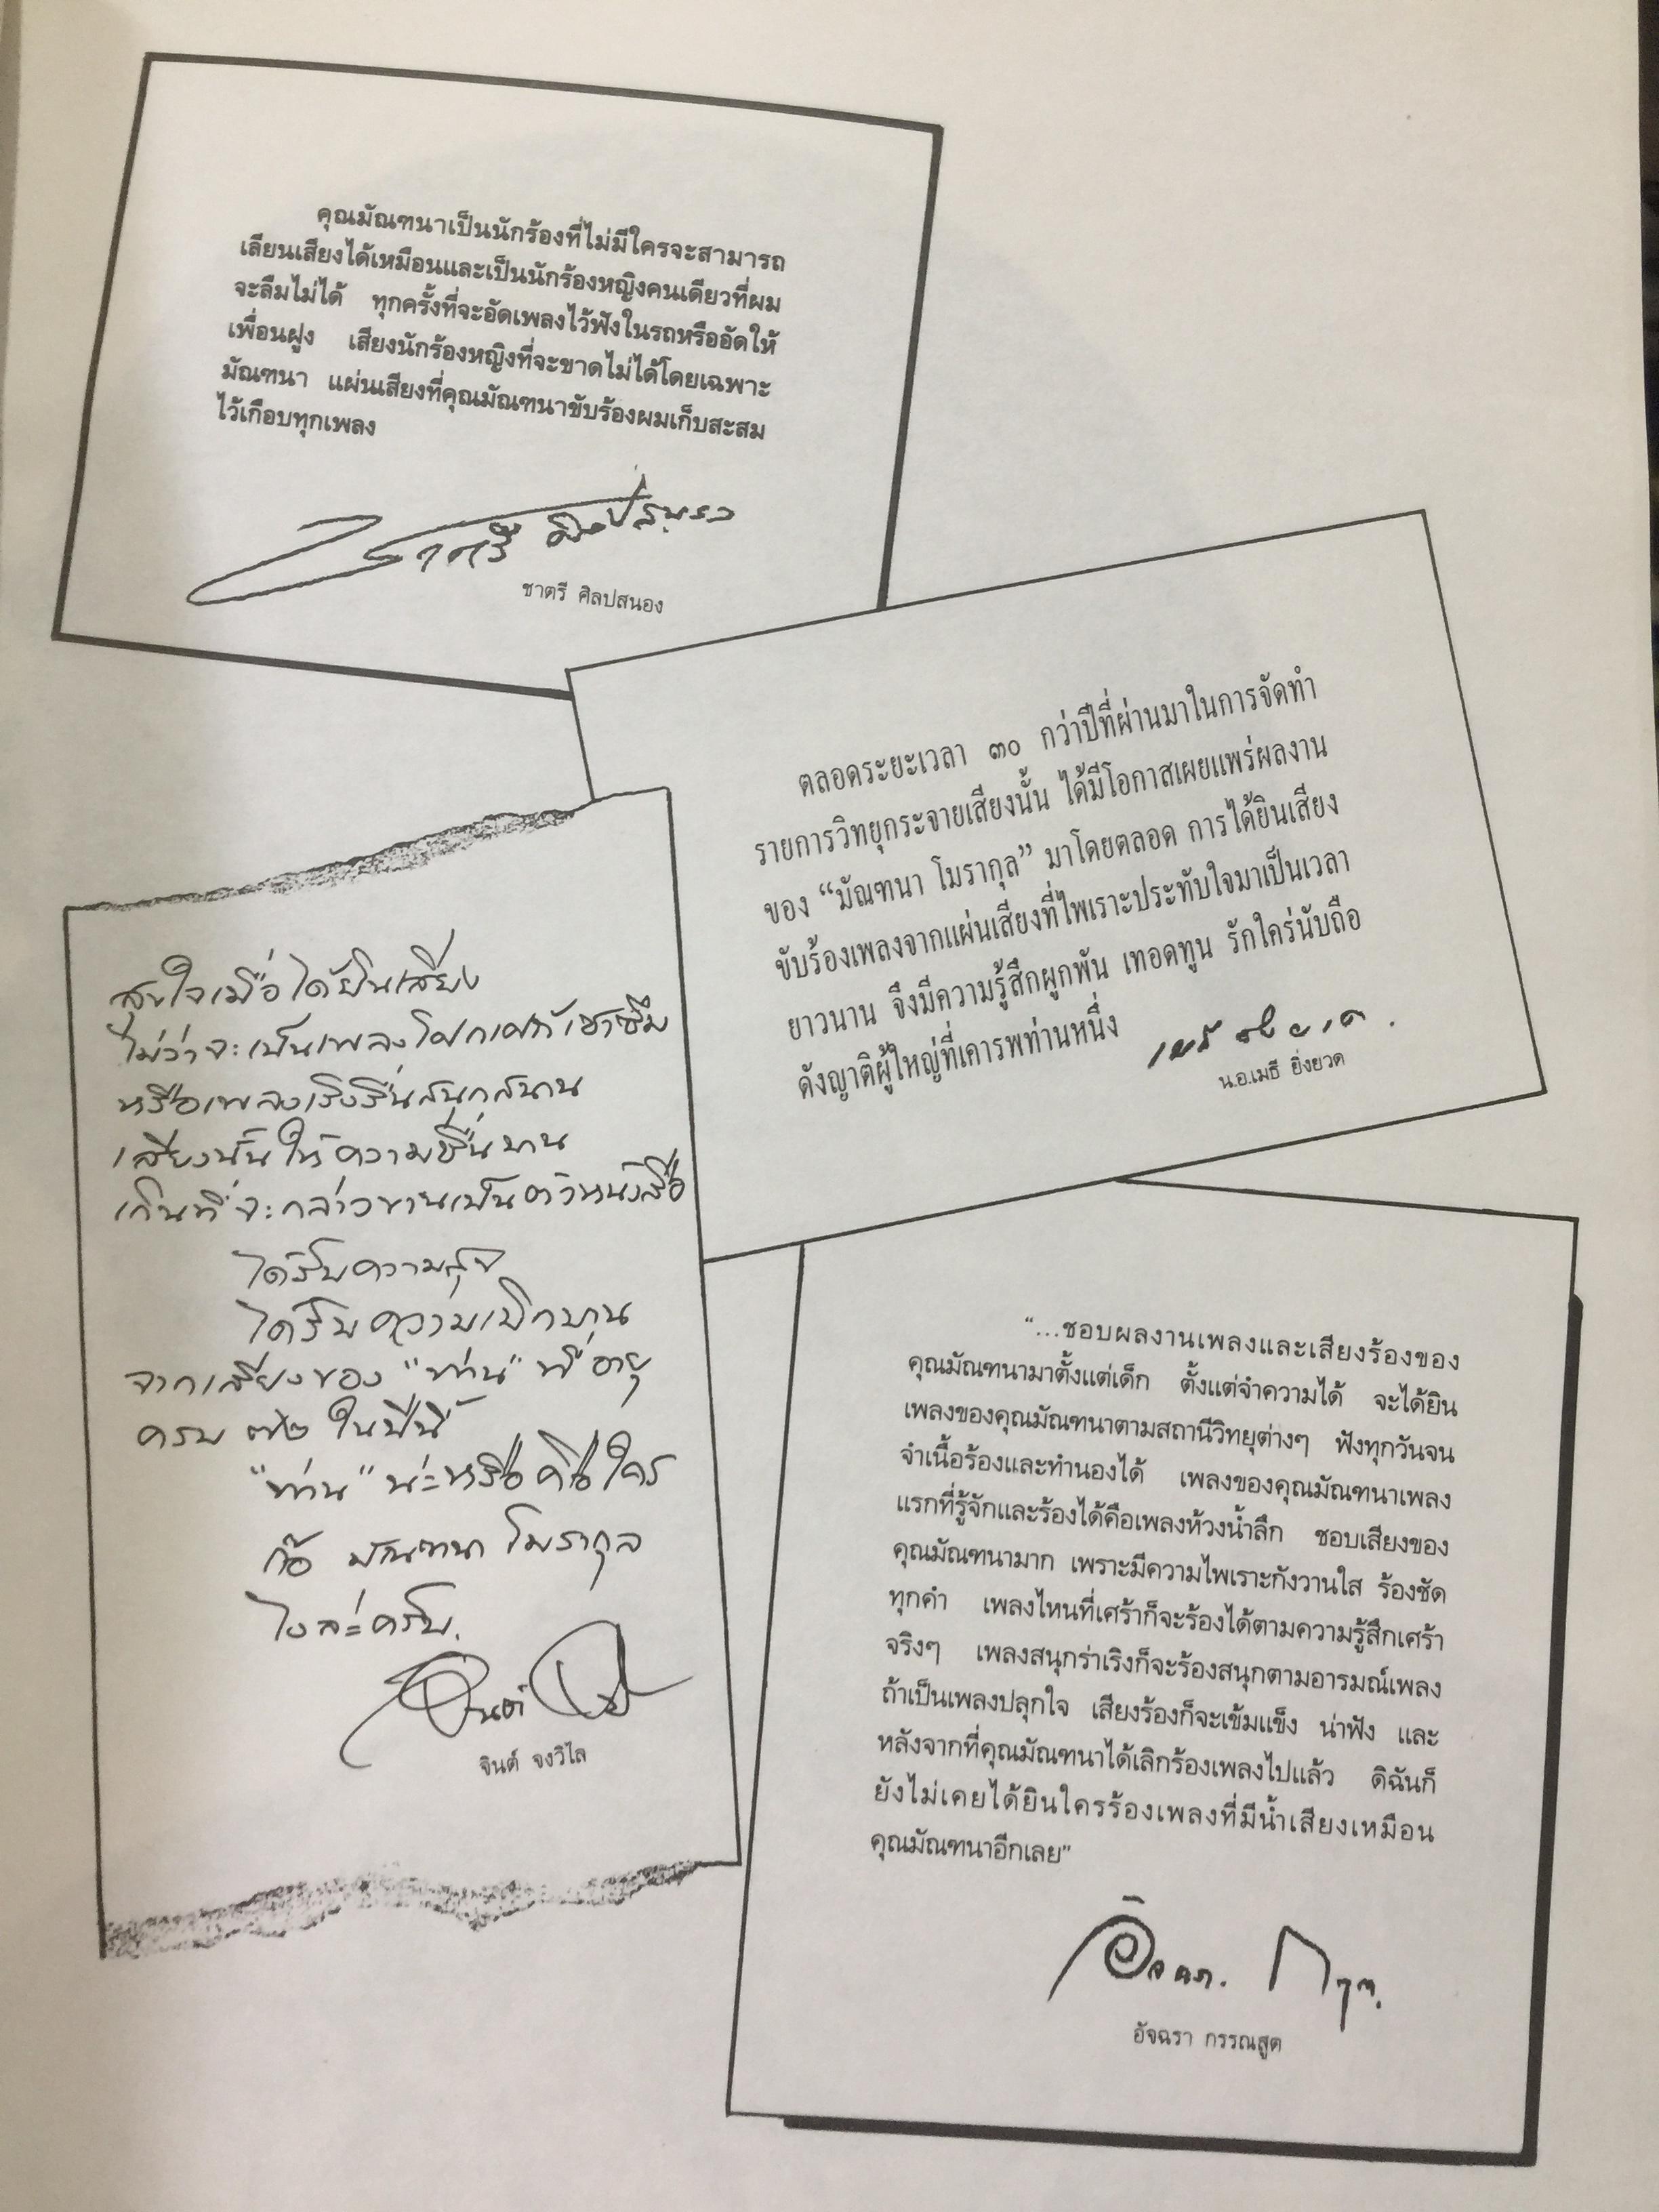 คุณมัณฑนาเป็นนักร้องที่ไม่มีใครจะสามารถ
เลียนเสียงได้เหมือนและเป็นนักร้องหญิงคนเดียวที่ผม
จะลืมไม่ได้ ทุกครั้งที่จะอัดเพลงไว้ฟังในรถหรืออัดให้
เพื่อนฝูง เสียงนักร้องหญิงที่จะขาดไม่ได้โดยเฉพาะ
มัณฑนา แผ่นเสียงที่คุณมัณฑนาขับร้องผมเก็บสะสม
ไว้เกือบทุกเพลง
ชาตรี ศิลปสนอง
ชาตรี ศิลปสนอง
ตลอดระยะเวลา ๓๐ กว่าปีที่ผ่านมาในการจัดทำ
รายการวิทยุกระจายเสียงนั้น ได้มีโอกาสเผยแพร่ผลงาน
ของ “มัณฑนา โมรากุล” มาโดยตลอด การได้ยินเสียง
ขับร้องเพลงจากแผ่นเสียงที่ไพเราะประทับใจมาเป็นเวลา
ยาวนาน จึงมีความรู้สึกผูกพัน เทอดทูน รักใคร่นับถือ
ดังญาติผู้ใหญ่ที่เคารพท่านหนึ่ง
น.อ.เมธี ยิ่งยวด
สุขใจเมื่อได้ยินเสียง
ไม่ว่าจะเป็นเพลงโศกเศร้าซาซึม
หรือเพลงเริงรื่นสนุกสนาน
เสียงนั้นให้ความชื่นบาน
เกินที่จะกล่าวขานเป็นตัวหนังสือ
ได้รับความสุข
ได้รับความเบิกบาน
จากเสียงของ "ท่าน" ที่อายุ
ครบ ๗๒ ในปีนี้
"ท่าน" น่ะหรือคือใคร
ก็อ มัณฑนา โมรากุล
ไงล่ะครับ.
จินต์ จงวิไล
“...ชอบผลงานเพลงและเสียงร้องของ
คุณมัณฑนามาตั้งแต่เด็ก ตั้งแต่จำความได้ จะได้ยิน
เพลงของคุณมัณฑนาตามสถานีวิทยุต่างๆ ฟังทุกวันจน
จำเนื้อร้องและทำนองได้ เพลงของคุณมัณฑนาเพลง
แรกที่รู้จักและร้องได้คือเพลงห้วงน้ำลึก ชอบเสียงของ
คุณมัณฑนามาก เพราะมีความไพเราะกังวานใส ร้องชัด
ทุกคำ เพลงไหนที่เศร้าก็จะร้องได้ตามความรู้สึกเศร้า
จริงๆ เพลงสนุกร่าเริงก็จะร้องสนุกตามอารมณ์เพลง
ถ้าเป็นเพลงปลุกใจ เสียงร้องก็จะเข้มแข็ง น่าฟัง และ
หลังจากที่คุณมัณฑนาได้เลิกร้องเพลงไปแล้ว ดิฉันก็
ยังไม่เคยได้ยินใครร้องเพลงที่มีน้ำเสียงเหมือน
คุณมัณฑนาอีกเลย”
อัจฉรา กรรณสูต